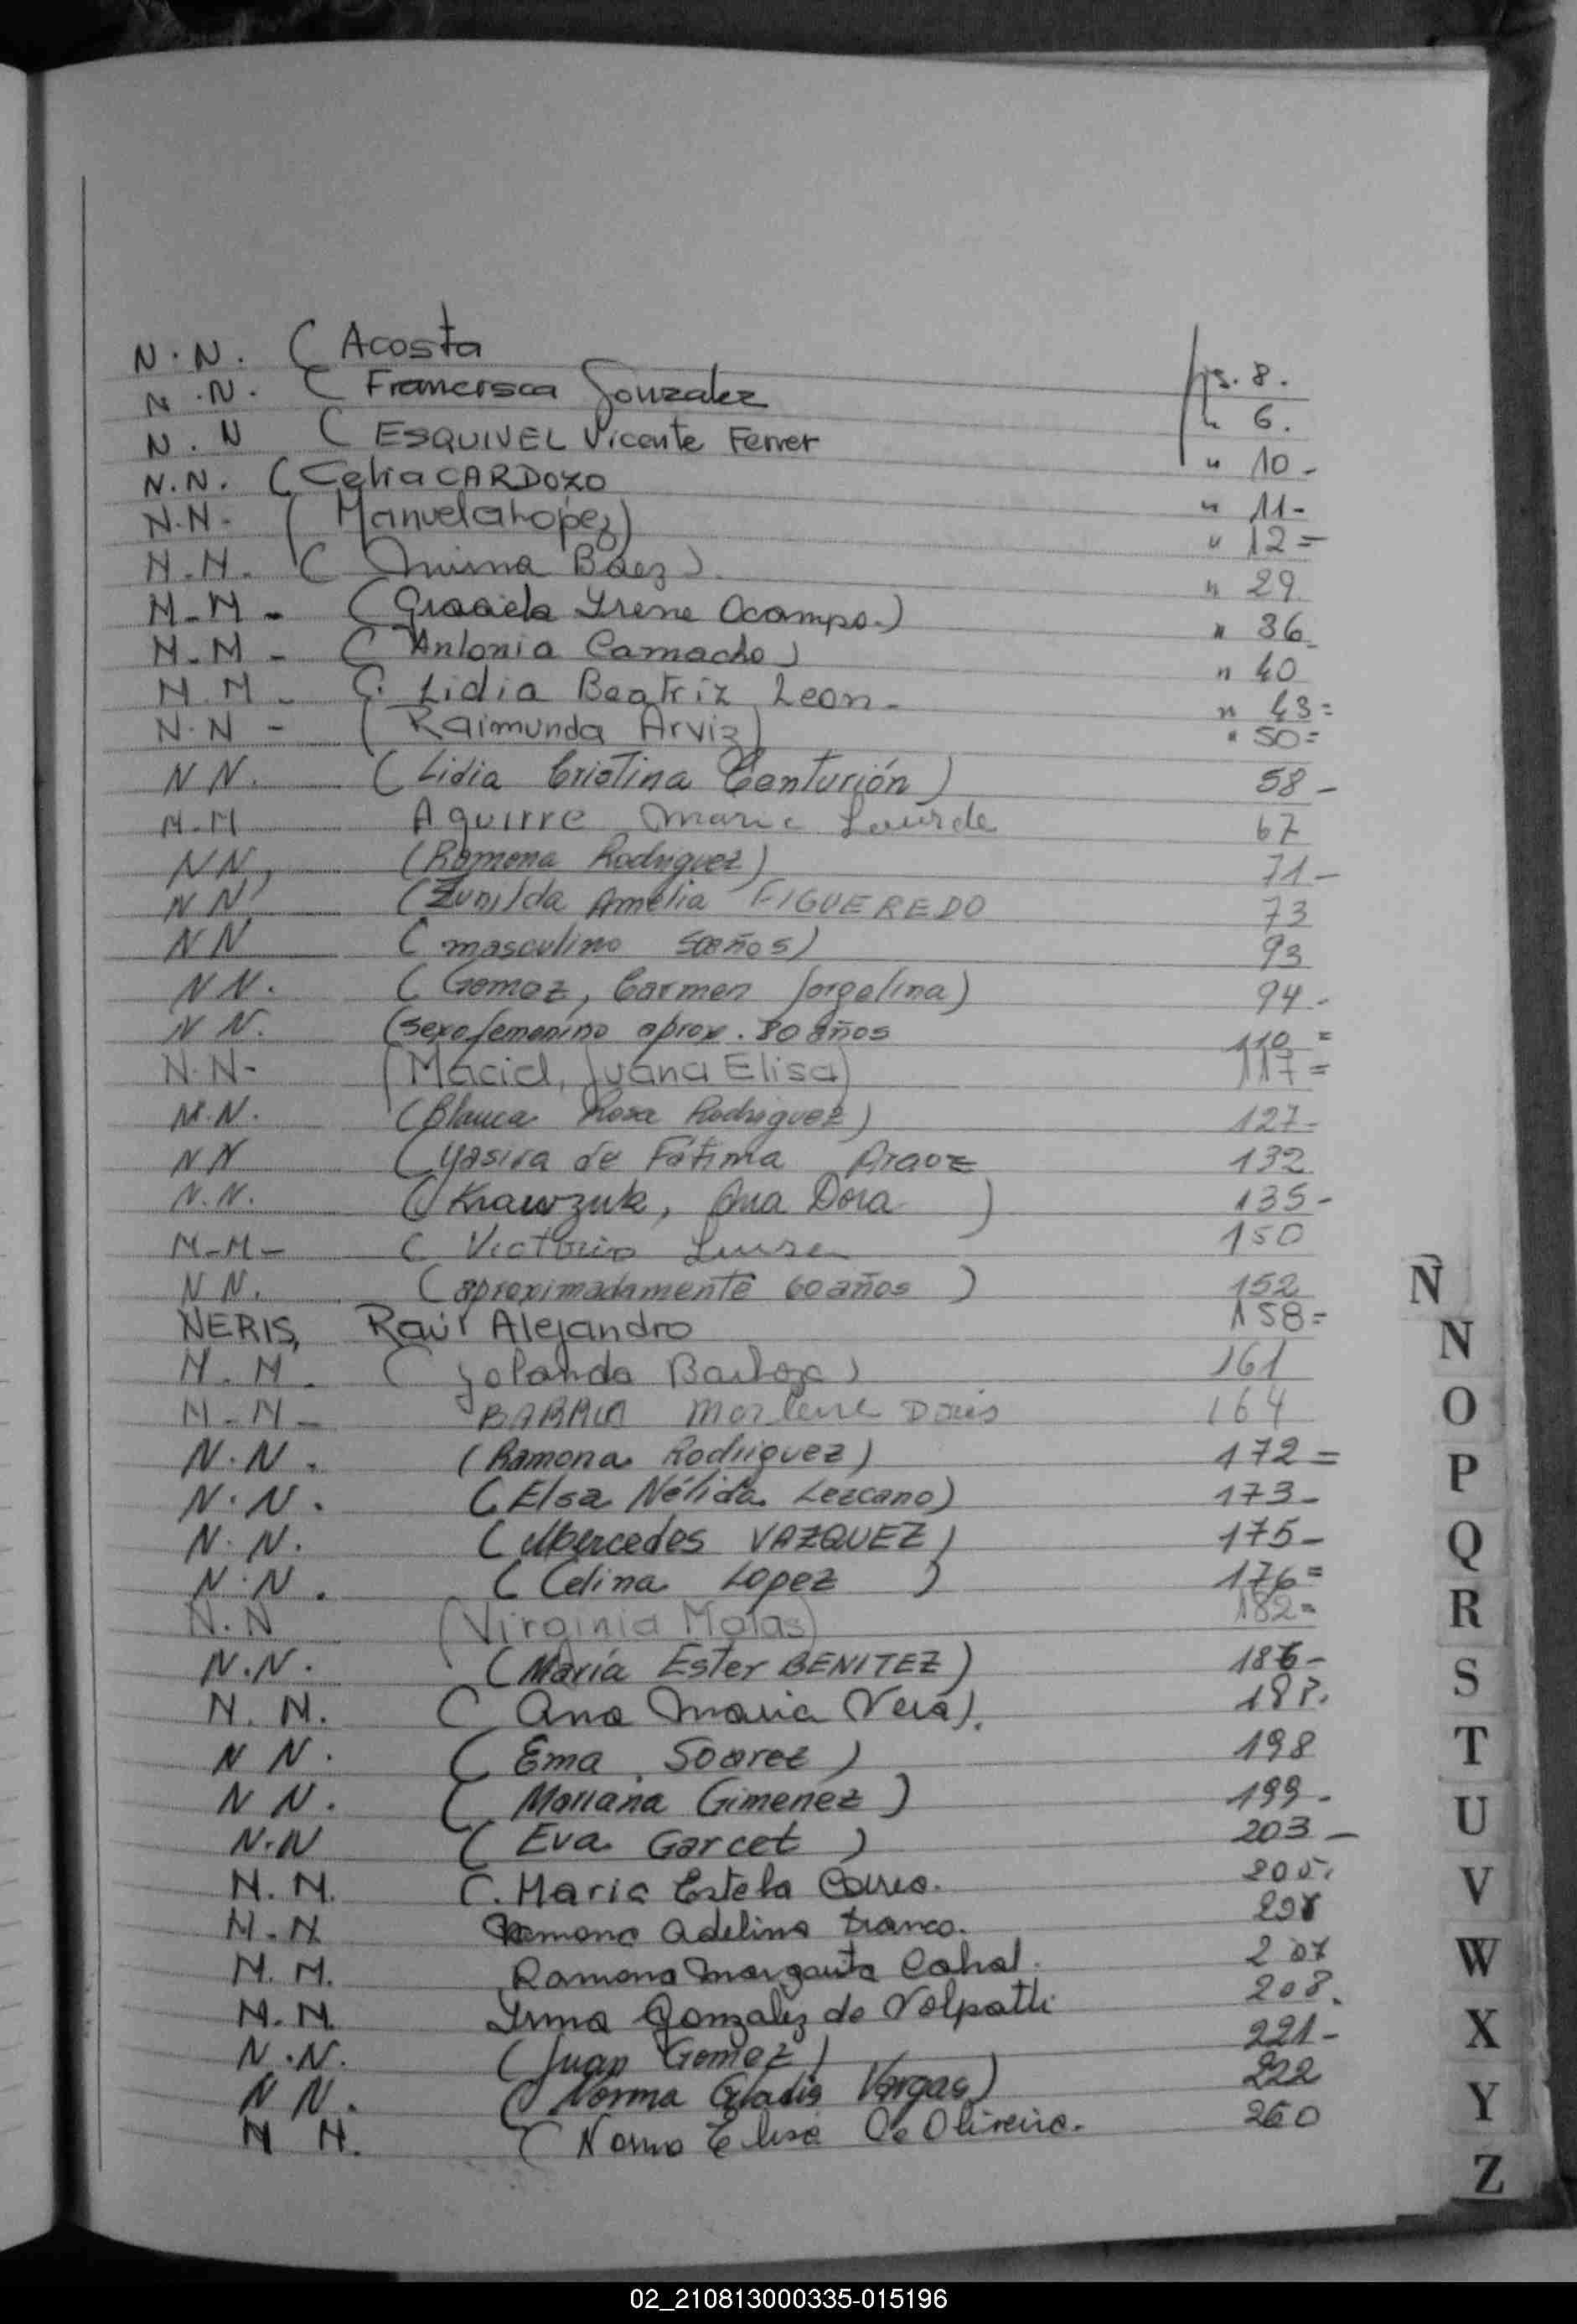 N.N. ( Acosta fjs. 8.
N.N. ( Francisca Gonzalez " 6.
N.N ( ESQUIVEL Vicente Ferrer " 10-
N.N. ( Celia CARDOZO " 11-
N.N- ( Manuela Lopez) " 12=
N.N. ( Báez). " 29
N-N- (Graciela Irene Ocampo.) " 36
N-N- ( Antonia Camacho) " 40
N.N- (. Lidia Beatriz Leon- " 43=
N.N- ( Raimunda Arviz) " 50=
NN. ( Lidia Cristina Centurión) 58-
N-N Aguirre Maria Lourde 67
NN, (Ramona Rodriguez) 71-
NN, (Zunilda Amelia FIGUEREDO 73
NN ( masculino 50 años) 93
NN. ( Gomez, Carmen Jorgelina) 94-
NN. (sexo femenino aprox. 80 años 110=
N.N- (Maciel, Juana Elisa) 117=
N.N. (Blanca Rosa Rodriguez) 127-
NN (Yasira de Fátima Araoz 132
N.N. ( Krawzuk, Ana Dora ) 135-
N-N- ( Luisa 150
NN. (aproximadamente 60 años ) 152
NERIS, Raúl Alejandro 158=
N.N. ( Yolanda Barboza) 161
N-N- Marlene Doris 164
N.N. (Ramona Rodriguez) 172=
N.N. (Elsa Nélida Lezcano) 173-
N.N. (Mercedes VAZQUEZ) 175-
N.N. ( Celina Lopez ) 176=
N.N (Virginia Molas) 182=
N.N. (María Ester BENITEZ) 186-
N.N. ( Ana Maria Vera).
NN. ( Ema Soarez ) 198
NN. ( Mariana Gimenez ) 199-
N.N ( Eva Garcet ) 203-
N.N. (. Maria Estela 205.
N.N Ramona Adelina Franco.
N.N. Ramona Margarita Cabral. 207
N.N. Irma Gonzalez de Volpatti 208.
N.N. (Juan Gomez) 221-
NN. ( Norma Gladis Vargas) 222
N N. ( Norma Elisa De Oliveira. 260
Ñ
N
O
P
Q
R
S
T
U
V
W
X
Y
Z
02_210813000335-015196